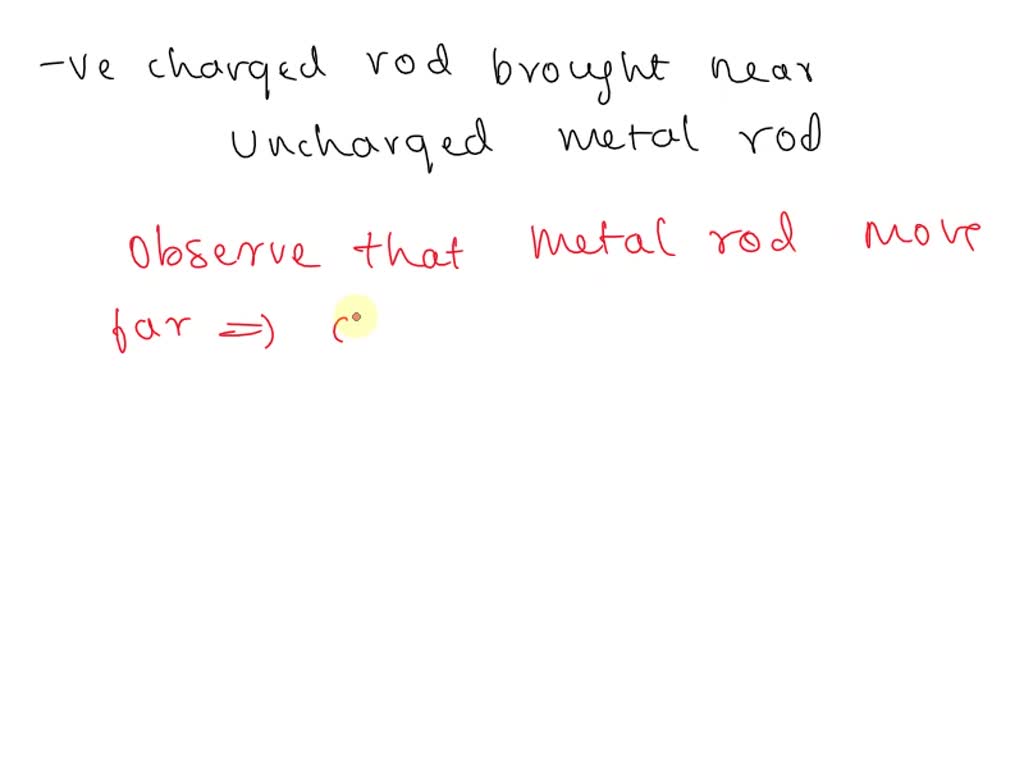 -ve charged rod brought near
Uncharged metal rod
Observe that metal rod move
far ⇒ (